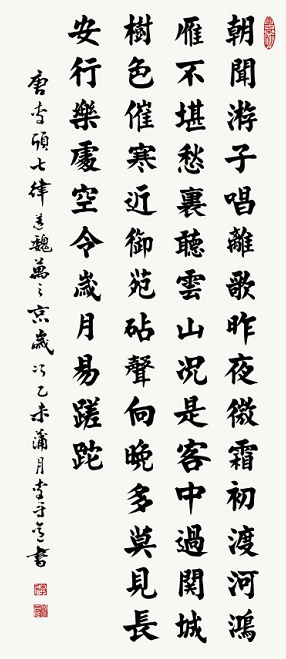 朝聞游子唱離歌昨夜微霜初渡河鴻
雁不堪愁裏聽雲山況是客中過関城
樹色催寒近御苑砧聲向晚多莫見長
安行樂處空令歲月易蹉跎
唐李頎七律送魏萬之京歲次乙未蒲月李守書